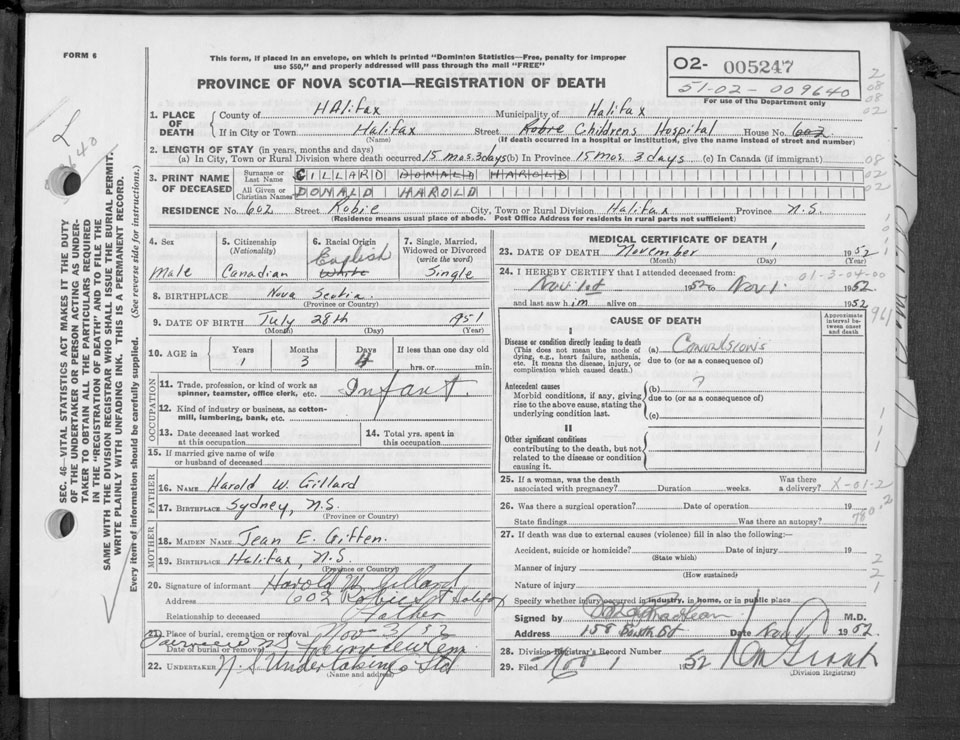 FORM 6
This form, if placed in an envelope, on which is printed "Dominion Statistics—Free, penalty for improper
use $50," and properly addressed will pass through the mail "FREE"
PROVINCE OF NOVA SCOTIA—REGISTRATION OF DEATH
02- 005247
51-02-009640
For use of the Department only
1. PLACE OF DEATH
County of Halifax Municipality of Halifax
If in City or Town Halifax Street Robie Childrens Hospital House No. 602
(Name) (If death occurred in a hospital or institution, give the name instead of street and number)
2. LENGTH OF STAY (in years, months and days)
(a) In City, Town or Rural Division where death occurred 15 mos. 3 days (b) In Province 15 mos. 3 days (c) In Canada (if immigrant)
3. PRINT NAME OF DECEASED
Surname or Last Name GILLARD DONALD HAROLD
All Given or Christian Names DONALD HAROLD
RESIDENCE No. 602 Street Robie City, Town or Rural Division Halifax Province N.S.
(Residence means usual place of abode. Post Office Address for residents in rural parts not sufficient)
SEC. 46—VITAL STATISTICS ACT MAKES IT THE DUTY
OF THE UNDERTAKER OR PERSON ACTING AS UNDER-
TAKER TO OBTAIN ALL THE PARTICULARS REQUIRED
IN THE "REGISTRATION OF DEATH" AND TO FILE THE
SAME WITH THE DIVISION REGISTRAR WHO SHALL ISSUE THE BURIAL PERMIT.
WRITE PLAINLY WITH UNFADING INK. THIS IS A PERMANENT RECORD.
Every item of information should be carefully supplied. (See reverse side for instructions.)
4. Sex
Male
5. Citizenship
(Nationality)
Canadian
6. Racial Origin
English
White
7. Single, Married,
Widowed or Divorced
(write the word)
Single
8. BIRTHPLACE Nova Scotia
(Province or Country)
9. DATE OF BIRTH July 28th 1951
(Month) (Day) (Year)
10. AGE in
Years 1
Months 3
Days 4
If less than one day old
hrs. or min.
OCCUPATION
11. Trade, profession, or kind of work as
spinner, teamster, office clerk, etc. Infant.
12. Kind of industry or business, as cotton-
mill, lumbering, bank, etc.
13. Date deceased last worked
at this occupation
14. Total yrs. spent in
this occupation
15. If married give name of wife
or husband of deceased
FATHER
16. NAME Harold W. Gillard
17. BIRTHPLACE Sydney, N.S.
(Province or Country)
MOTHER
18. MAIDEN NAME Jean E. Giffen.
19. BIRTHPLACE Halifax, N.S.
(Province or Country)
20. Signature of informant Harold W Gillard
Address 602 Robie St Halifax
Relationship to deceased Father
21. Place of burial, cremation or removal Nov 3/52
Fairview N.S
Date of burial or removal Fairview Cem
22. UNDERTAKER N.S Undertaking Ltd
(Name and address)
MEDICAL CERTIFICATE OF DEATH
23. DATE OF DEATH November 1 1952
(Month) (Day) (Year)
24. I HEREBY CERTIFY that I attended deceased from:
01-3-04-00
Nov. 1st 1952 to Nov 1. 1952
and last saw him alive on 1952
CAUSE OF DEATH
Approximate
interval between
onset and
death
I
Disease or condition directly leading to death
(This does not mean the mode of
dying, e.g., heart failure, asthenia,
etc. It means the disease, injury, or
complication which caused death.)
(a) Convulsions
due to (or as a consequence of)
Antecedent causes
Morbid conditions, if any, giving
rise to the above cause, stating the
underlying condition last.
(b) ?
due to (or as a consequence of)
(c)
II
Other significant conditions
contributing to the death, but not
related to the disease or condition
causing it.
25. If a woman, was the death
associated with pregnancy? Duration weeks. Was there
a delivery? X-01-2
26. Was there a surgical operation? Date of operation 19
State findings Was there an autopsy? 780.2
27. If death was due to external causes (violence) fill in also the following:—
Accident, suicide or homicide? Date of injury 19
(State which)
Manner of injury
(How sustained)
Nature of injury
Specify whether injury occurred in industry, in home, or in public place
Signed by M.D.
Address 158 South St Date Nov 1 1952.
28. Division Registrar's Record Number
29. Filed Nov 1 1952
(Division Registrar)